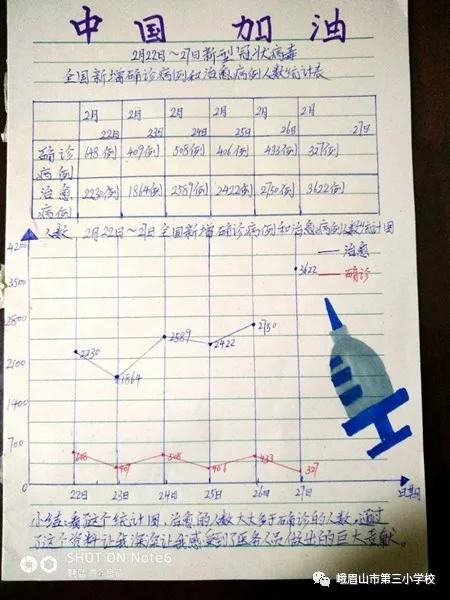 中国加油
2月22日～27日新型冠状病毒
全国新增确诊病例和治愈病例人数统计表
2月22日 2月23日 2月24日 2月25日 2月26日 2月27日
确诊病例 648例 409例 508例 406例 433例 327例
治愈病例 2230例 1864例 2589例 2422例 2750例 3622例
人数 2月22日～27日全国新增确诊病例和治愈病例人数统计图
4200
治愈
3622
3500
确诊
2800
2750
2589
2422
2230
2100
1864
1400
700
648 409 508 406 433 327
0
22日 23日 24日 25日 26日 27日 日期
小结：看了这个统计图，治愈的人数大大多于确诊的人数，通过
了这个资料让我深深让我感受到了医务人员做出的巨大贡献。
SHOT ON Note6
峨眉山市第三小学校